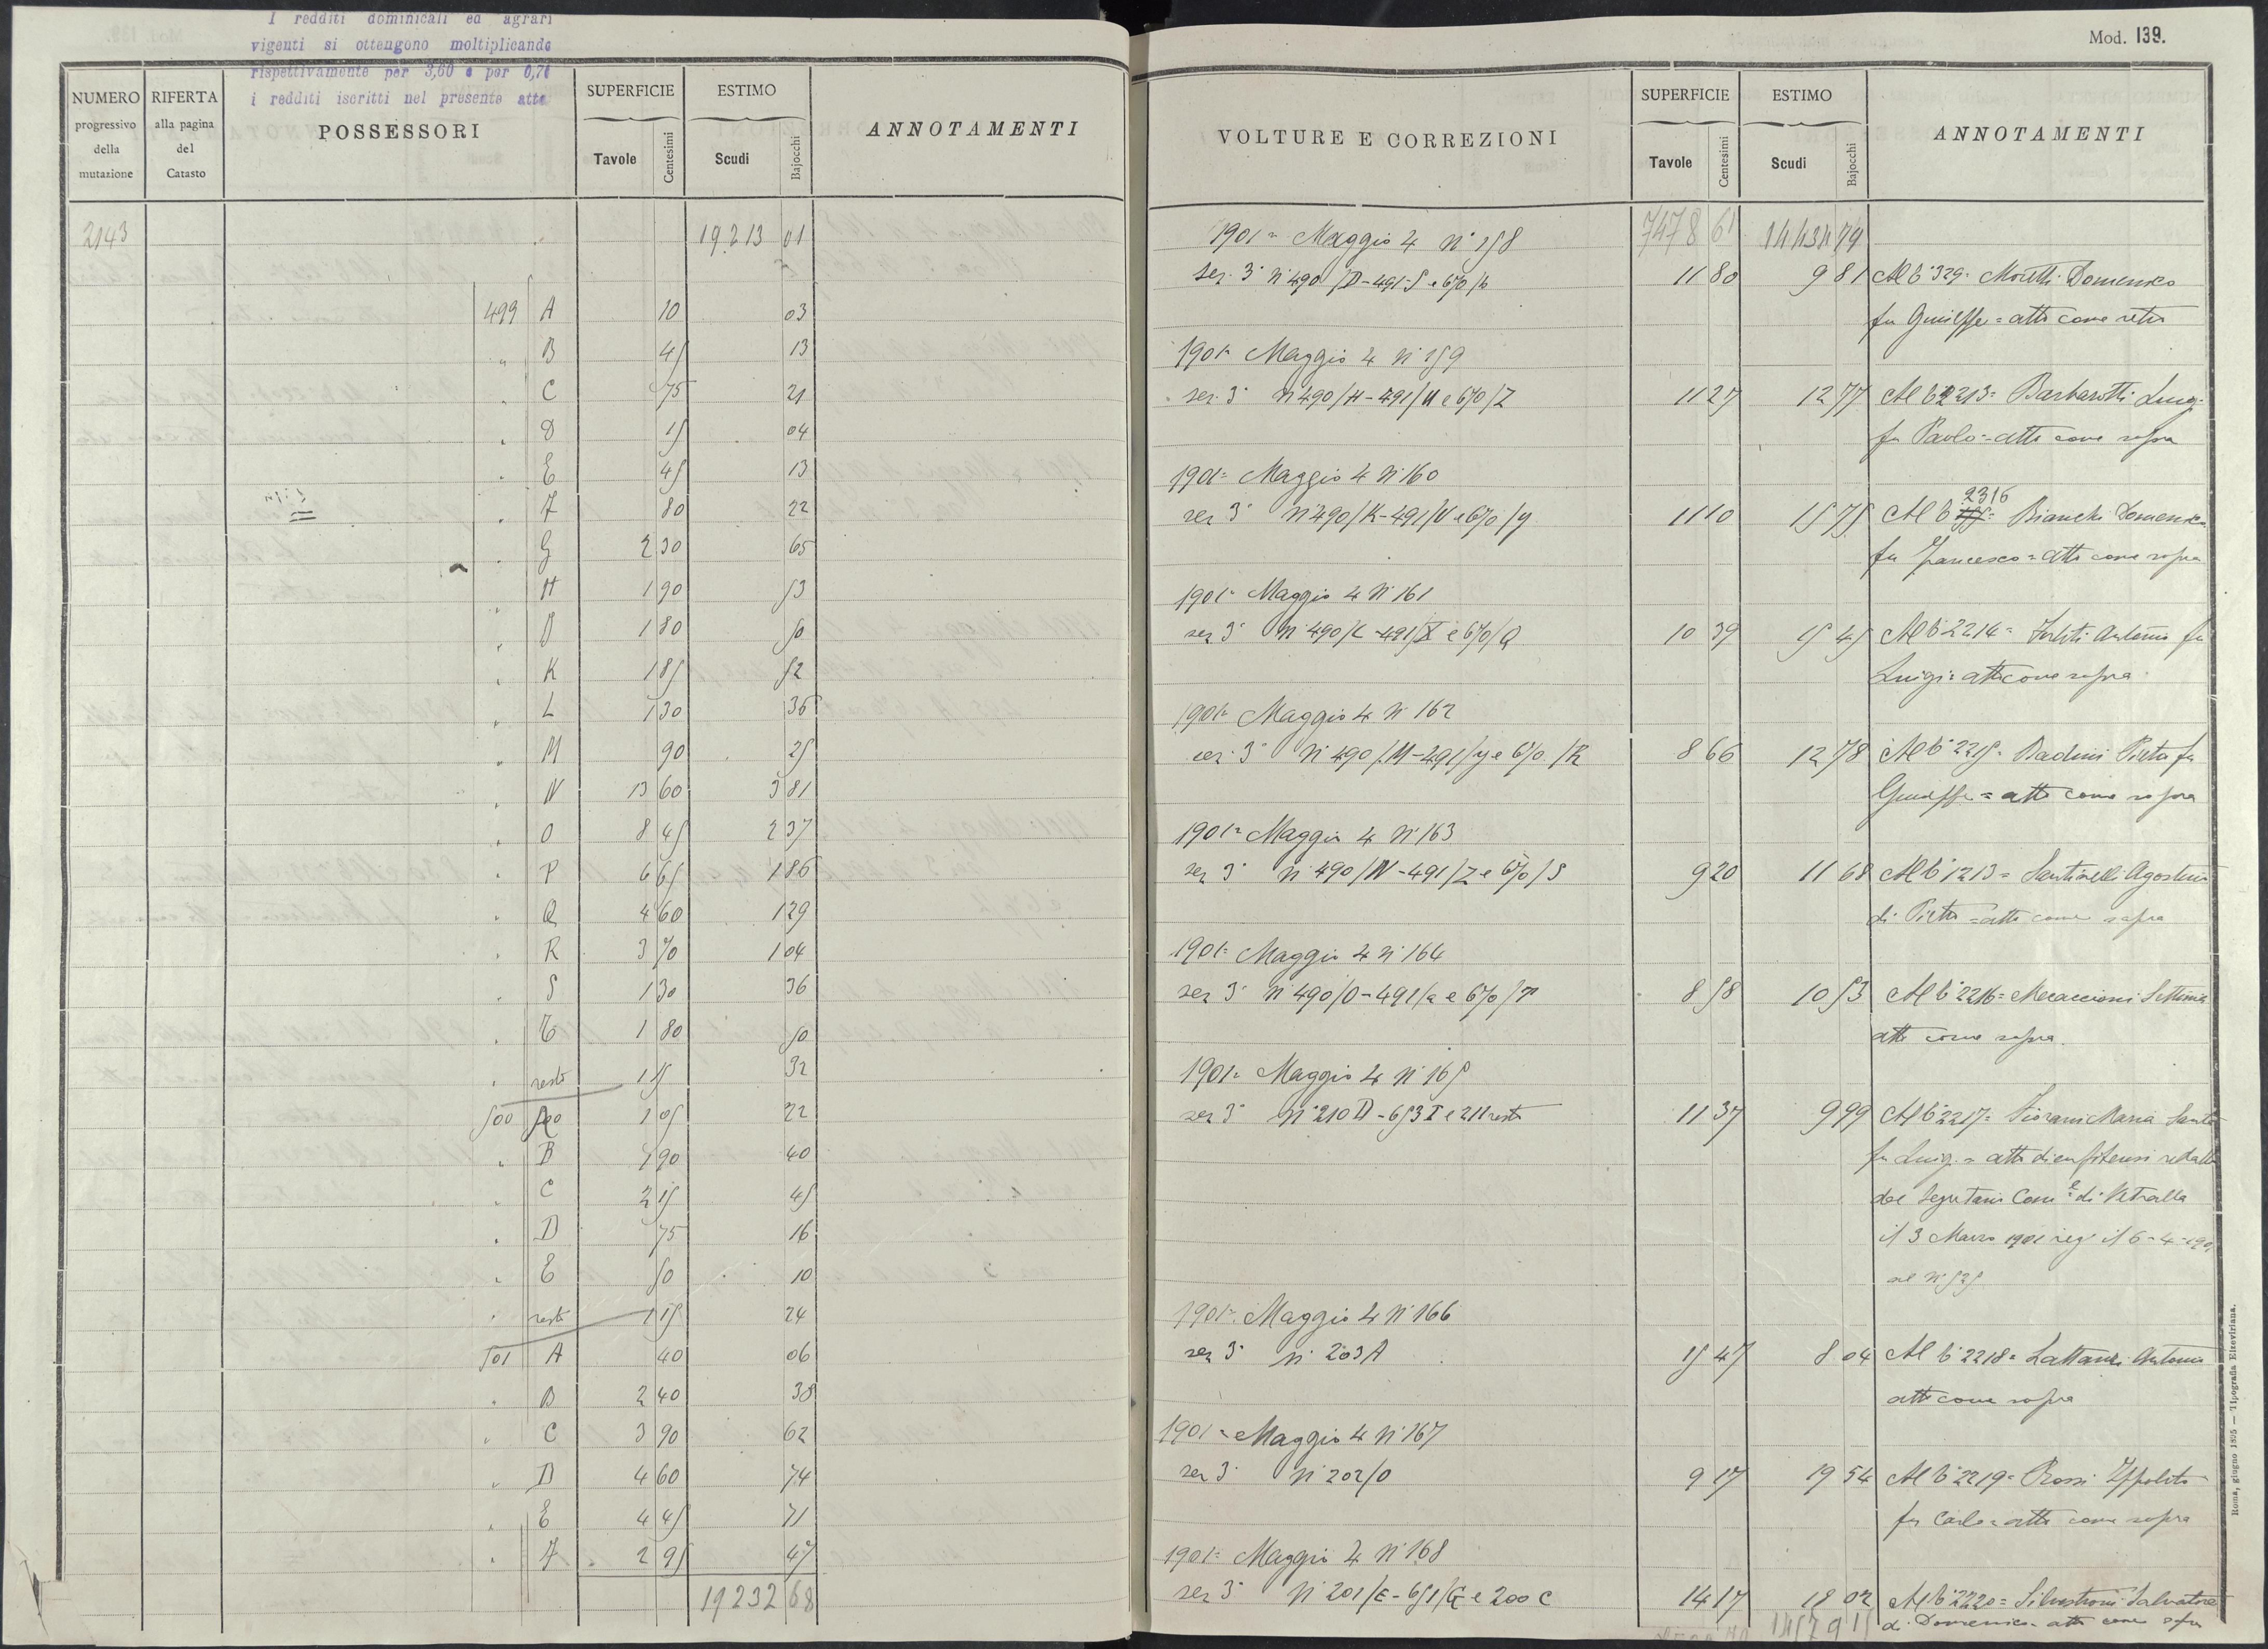 I redditi dominicali ed agrari
vigenti si ottengono moltiplicando
rispettivamente per 3,60 e per 0,70
i redditi iscritti nel presente atto
NUMERO progressivo della mutazione
RIFERTA alla pagina del Catasto
POSSESSORI
SUPERFICIE Tavole Centesimi
ESTIMO Scudi Bajocchi
ANNOTAMENTI
2143 19213 01
499 A 10 03
" B 45 13
" C 75 21
" D 15 04
" E 45 13
" F 80 22
" G 2 30 65
" H 1 90 53
" I 1 80 50
" K 1 85 52
" L 1 30 36
" M 90 25
" N 13 60 3 81
" O 8 45 2 37
" P 6 65 1 86
" Q 4 60 1 29
" R 3 70 1 04
" S 1 30 36
" T 1 80 50
" resto 1 15 32
500 A 1 05 22
" B 1 90 40
" C 2 15 45
" D 75 16
" E 50 10
" resto 1 15 24
501 A 40 06
" B 2 40 38
" C 3 90 62
" D 4 60 74
" E 4 45 71
" F 2 95 47
19232 68
Mod. 139.
VOLTURE E CORREZIONI
SUPERFICIE Tavole Centesimi
ESTIMO Scudi Bajocchi
ANNOTAMENTI
1901= Maggio 4 N° 158 7478 61 14434 79
sez. 3° N° 490/D-491 S e 670/ 11 80 9 81 Al b° 329= Moretti Domenico
fu Giuseppe= atto come retro
1901= Maggio 4 N° 159
sez. 3° N° 490/H-491/U e 670/Z 11 27 12 77 Al b° 2213= Barbarotti Luigi
fu Paolo= atto come sopra
1901= Maggio 4 N° 160
sez 3° N° 490/K-491/V e 670/y 11 10 15 75 Al b° 2316 Bianchi Domenico
fu Francesco= atto come sopra
1901= Maggio 4 N° 161
sez 3° N° 490/L-491/X e 670/Q 10 39 15 45 Al b° 2214= Antonio fu
Luigi= atto come sopra
1901= Maggio 4 N° 162
sez. 3° N° 490/M-491/y e 670/R 8 66 12 78 Al b° 2215= Badini Pietro fu
Giuseppe= atto come sopra
1901= Maggio 4 N° 163
sez 3° N° 490/N-491/Z e 670/S 9 20 11 68 Al b° 1213= Santinelli Agostino
di Pietro= atto come sopra
1901= Maggio 4 N° 164
sez 3° N° 490/O-491/a e 670/T 8 58 10 53 Al b° 2216= Mecaccioni Settimia
atto come sopra.
1901= Maggio 4 N° 165
sez 3° N° 210 D-653 I e 211 resto 11 37 9 99 Al b° 2217= Fiorani Maria Santa
fu Luigi= atto di enfiteusi redatto
dal Segretario Com.le di Vetralla
il 3 Marzo 1901 reg° il 6-4-1901
al N° 525
1901= Maggio 4 N° 166
sez 3° N° 203 A 15 47 8 04 Al b° 2218= Lattanzi Antonio
atto come sopra
1901= Maggio 4 N° 167
sez 3° N° 202/O 9 17 19 54 Al b° 2219= Rossi Ippolito
fu Carlo= atto come sopra
1901= Maggio 4 N° 168
sez 3° N° 201/E-651/G e 200 C 14 17 18 02 Al b° 2220= Silvestroni Salvatore
di Domenico= atto come sopra
Roma, giugno 1895 — Tipografia Elzeviriana.